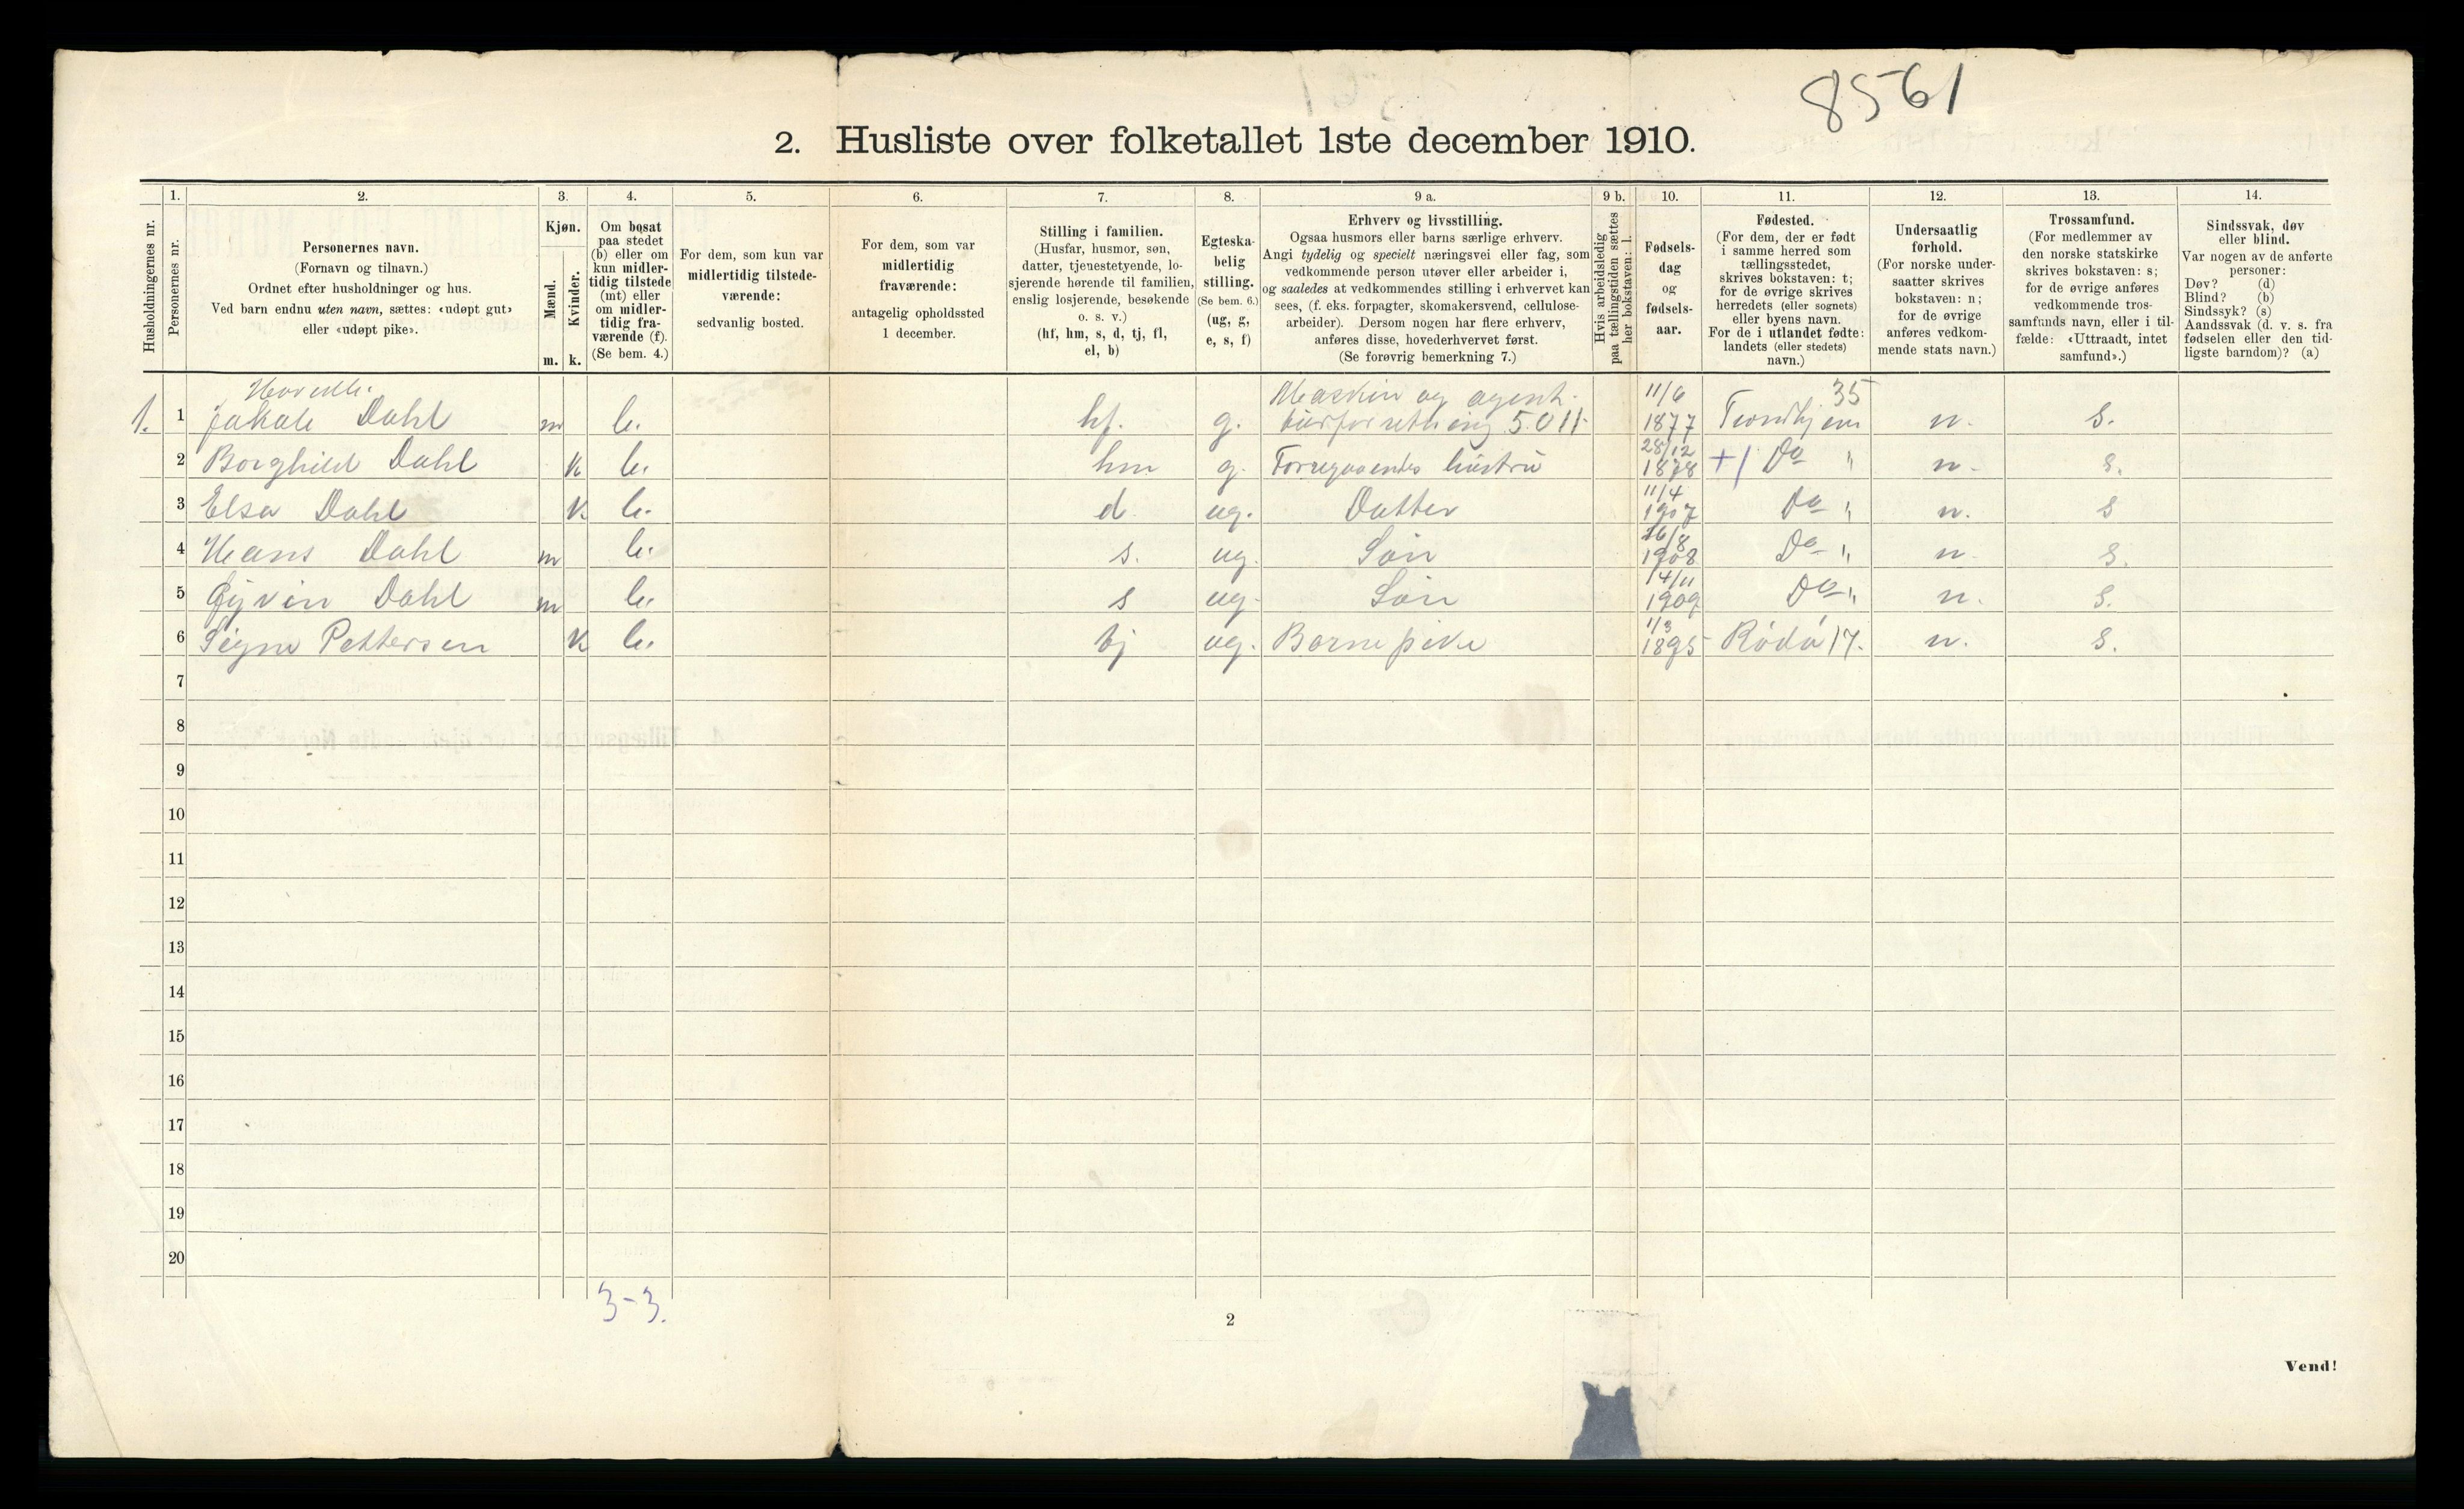 8561
2. Husliste over folketallet 1ste december 1910.
1. 2. 3. 4. 5. 6. 7. 8. 9 a. 9 b. 10. 11. 12. 13. 14.
Husholdningernes nr.
Personernes nr.
Personernes navn.
(Fornavn og tilnavn.)
Ordnet efter husholdninger og hus.
Ved barn endnu uten navn, sættes: «udøpt gut»
eller «udøpt pike».
Kjøn.
Mænd.
Kvinder.
m. k.
Om bosat
paa stedet
(b) eller om
kun midler-
tidig tilstede
(mt) eller
om midler-
tidig fra-
værende (f).
(Se bem. 4.)
For dem, som kun var
midlertidig tilstede-
værende:
sedvanlig bosted.
For dem, som var
midlertidig
fraværende:
antagelig opholdssted
1 december.
Stilling i familien.
(Husfar, husmor, søn,
datter, tjenestetyende, lo-
sjerende hørende til familien,
enslig losjerende, besøkende
o. s. v.)
(hf, hm, s, d, tj, fl,
el, b)
Egteska-
belig
stilling.
(Se bem. 6.)
(ug, g,
e, s, f)
Erhverv og livsstilling.
Ogsaa husmors eller barns særlige erhverv.
Angi tydelig og specielt næringsvei eller fag, som
vedkommende person utøver eller arbeider i,
og saaledes at vedkommendes stilling i erhvervet kan
sees, (f. eks. forpagter, skomakersvend, cellulose-
arbeider). Dersom nogen har flere erhverv,
anføres disse, hovederhvervet først.
(Se forøvrig bemerkning 7.)
Hvis arbeidsledig
paa tællingstiden sættes
her bokstaven: l.
Fødsels-
dag
og
fødsels-
aar.
Fødested.
(For dem, der er født
i samme herred som
tællingsstedet,
skrives bokstaven: t;
for de øvrige skrives
herredets (eller sognets)
eller byens navn.
For de i utlandet fødte:
landets (eller stedets)
navn.)
Undersaatlig
forhold.
(For norske under-
saatter skrives
bokstaven: n;
for de øvrige
anføres vedkom-
mende stats navn.)
Trossamfund.
(For medlemmer av
den norske statskirke
skrives bokstaven: s;
for de øvrige anføres
vedkommende tros-
samfunds navn, eller i til-
fælde: «Uttraadt, intet
samfund».)
Sindssvak, døv
eller blind.
Var nogen av de anførte
personer:
Døv? (d)
Blind? (b)
Sindssyk? (s)
Aandssvak (d. v. s. fra
fødselen eller den tid-
ligste barndom)? (a)
1. 1 Dahl m b. hf. g. Maskin og agent-
turforretning 5.011 11/6 1877 Trondhjem 35 n. s.
2 Borghild Dahl k b. hm g. Foregaaendes hustru 28/12 1878 +/ Do " n. s.
3 Elsa Dahl k. b. d ug. Datter 11/4 1907 Do " n. s
4 Hans Dahl m b. s. ug. Søn 16/8 1908 Do " n. s.
5 Øyvin Dahl m b. s ug. Søn 14/11 1909 Do " n. s.
6 Signe Pettersen k b. tj ug. Barnepike 1/3 1895 Rødø 17. n. s.
7
8
9
10
11
12
13
14
15
16
17
18
19
20
3-3.
2
Vend!